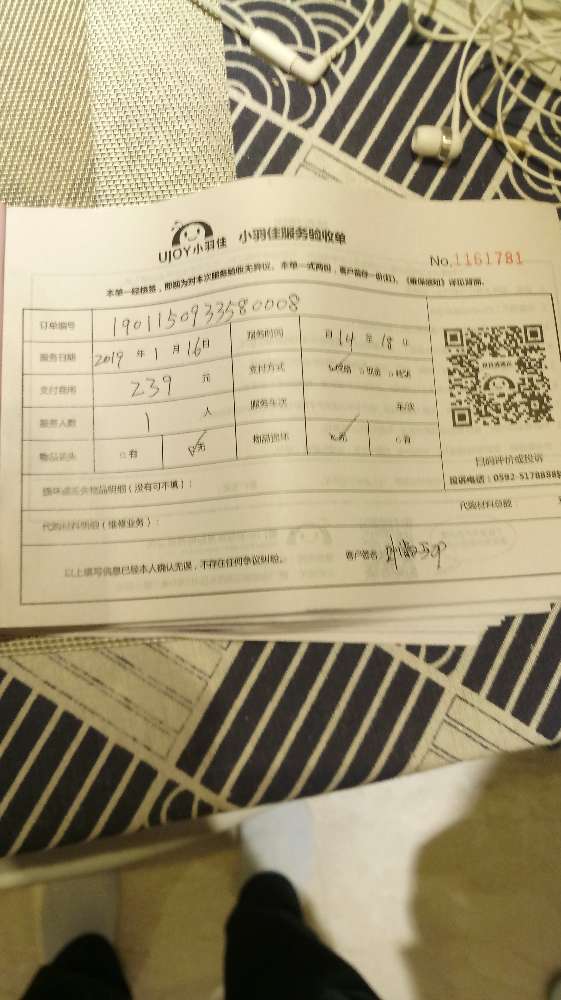 UJOY小羽佳 小羽佳服务验收单
No.1161781
本单一经格签，即视为对本次服务验收无异议。本单一式两份，客户留存一份(红)。《维保须知》详见背面。
订单编号 1901150933580008
服务日期 2019 年 1 月 16日 服务时间 自 14 至 18 止
支付费用 239 元 支付方式 网络 现金
服务人数 1 人 服务车次 车/次
物品丢失 有 无 物品损坏 无 有
扫码评价或投诉
投诉电话：0592-5178898
损坏或丢失物品明细（没有可不填）：
代购材料总额
代购材料明细（维修业务）：
以上填写信息已经本人确认无误，不存在任何争议纠纷。 客户签名：